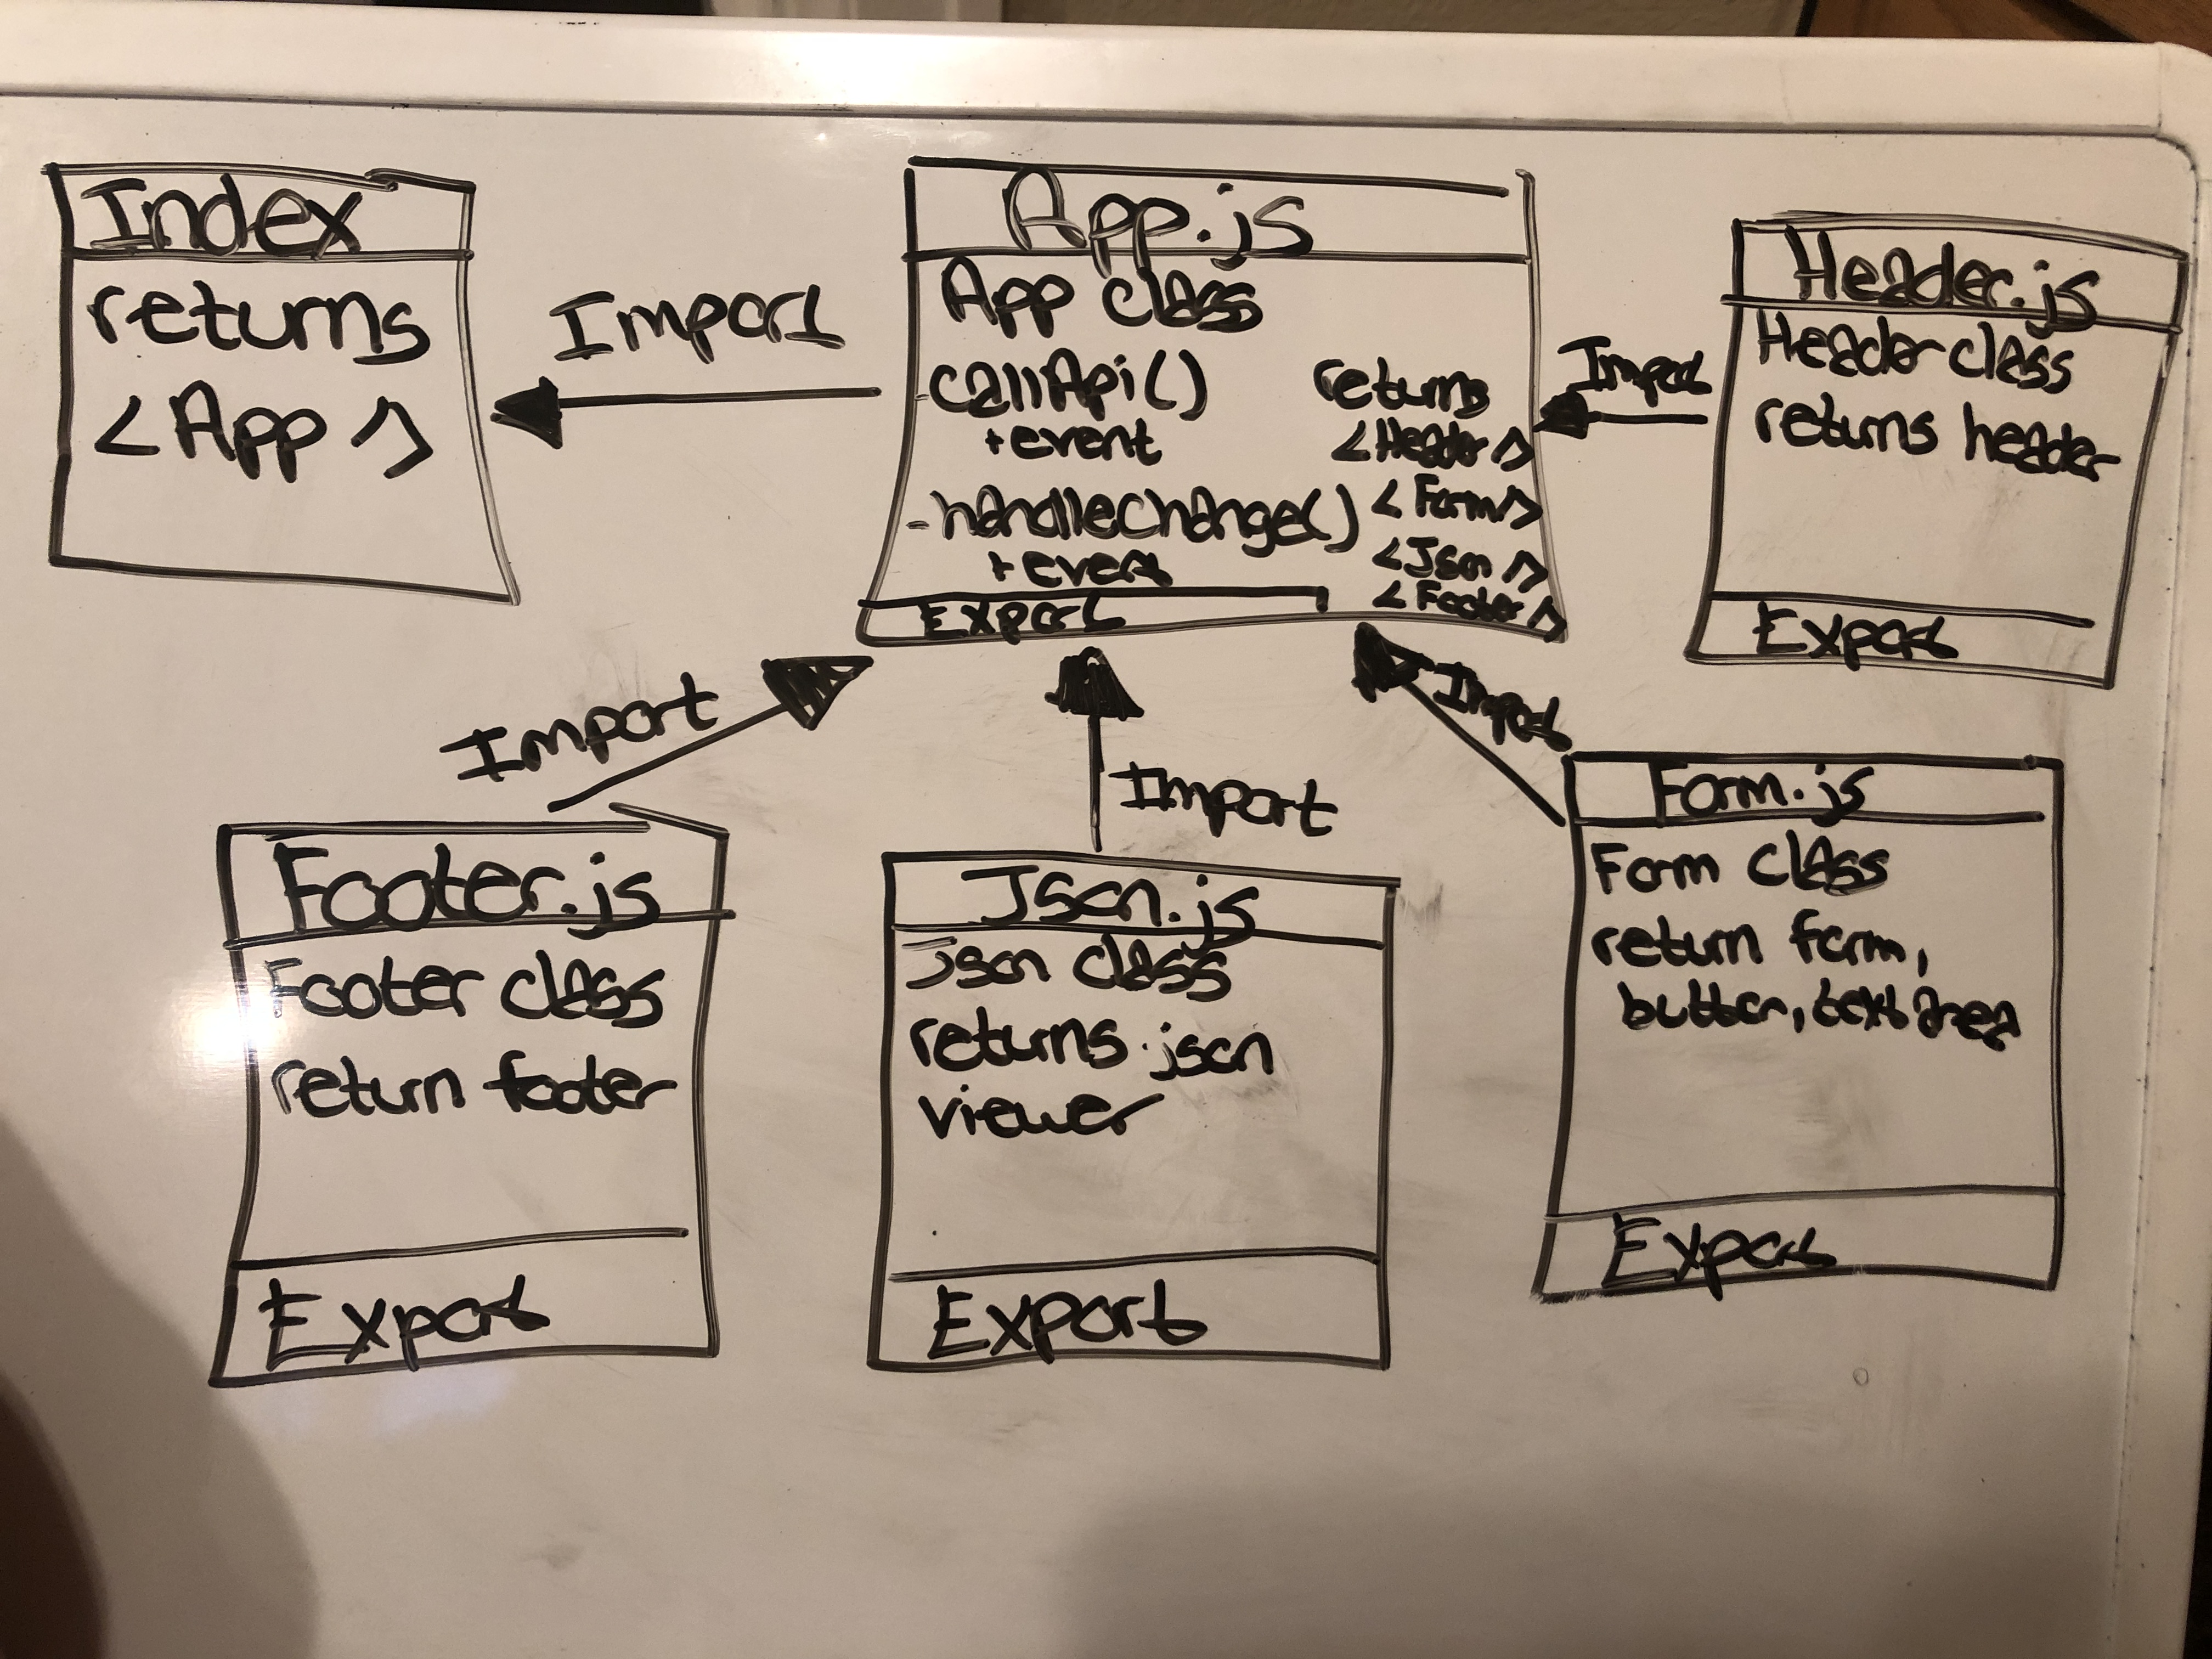 Index
returns
<App/>
Import
App.js
App class
-callApi()
+event
-handleChange()
+event
Export
returns
<Header/>
<Form/>
<Json/>
<Footer/>
Import
Header.js
Header class
returns header
Export
Import
Footer.js
Footer class
return footer
Export
Import
Json.js
Json class
returns json
viewer
Export
Import
Form.js
Form class
return form,
button, textArea
Export